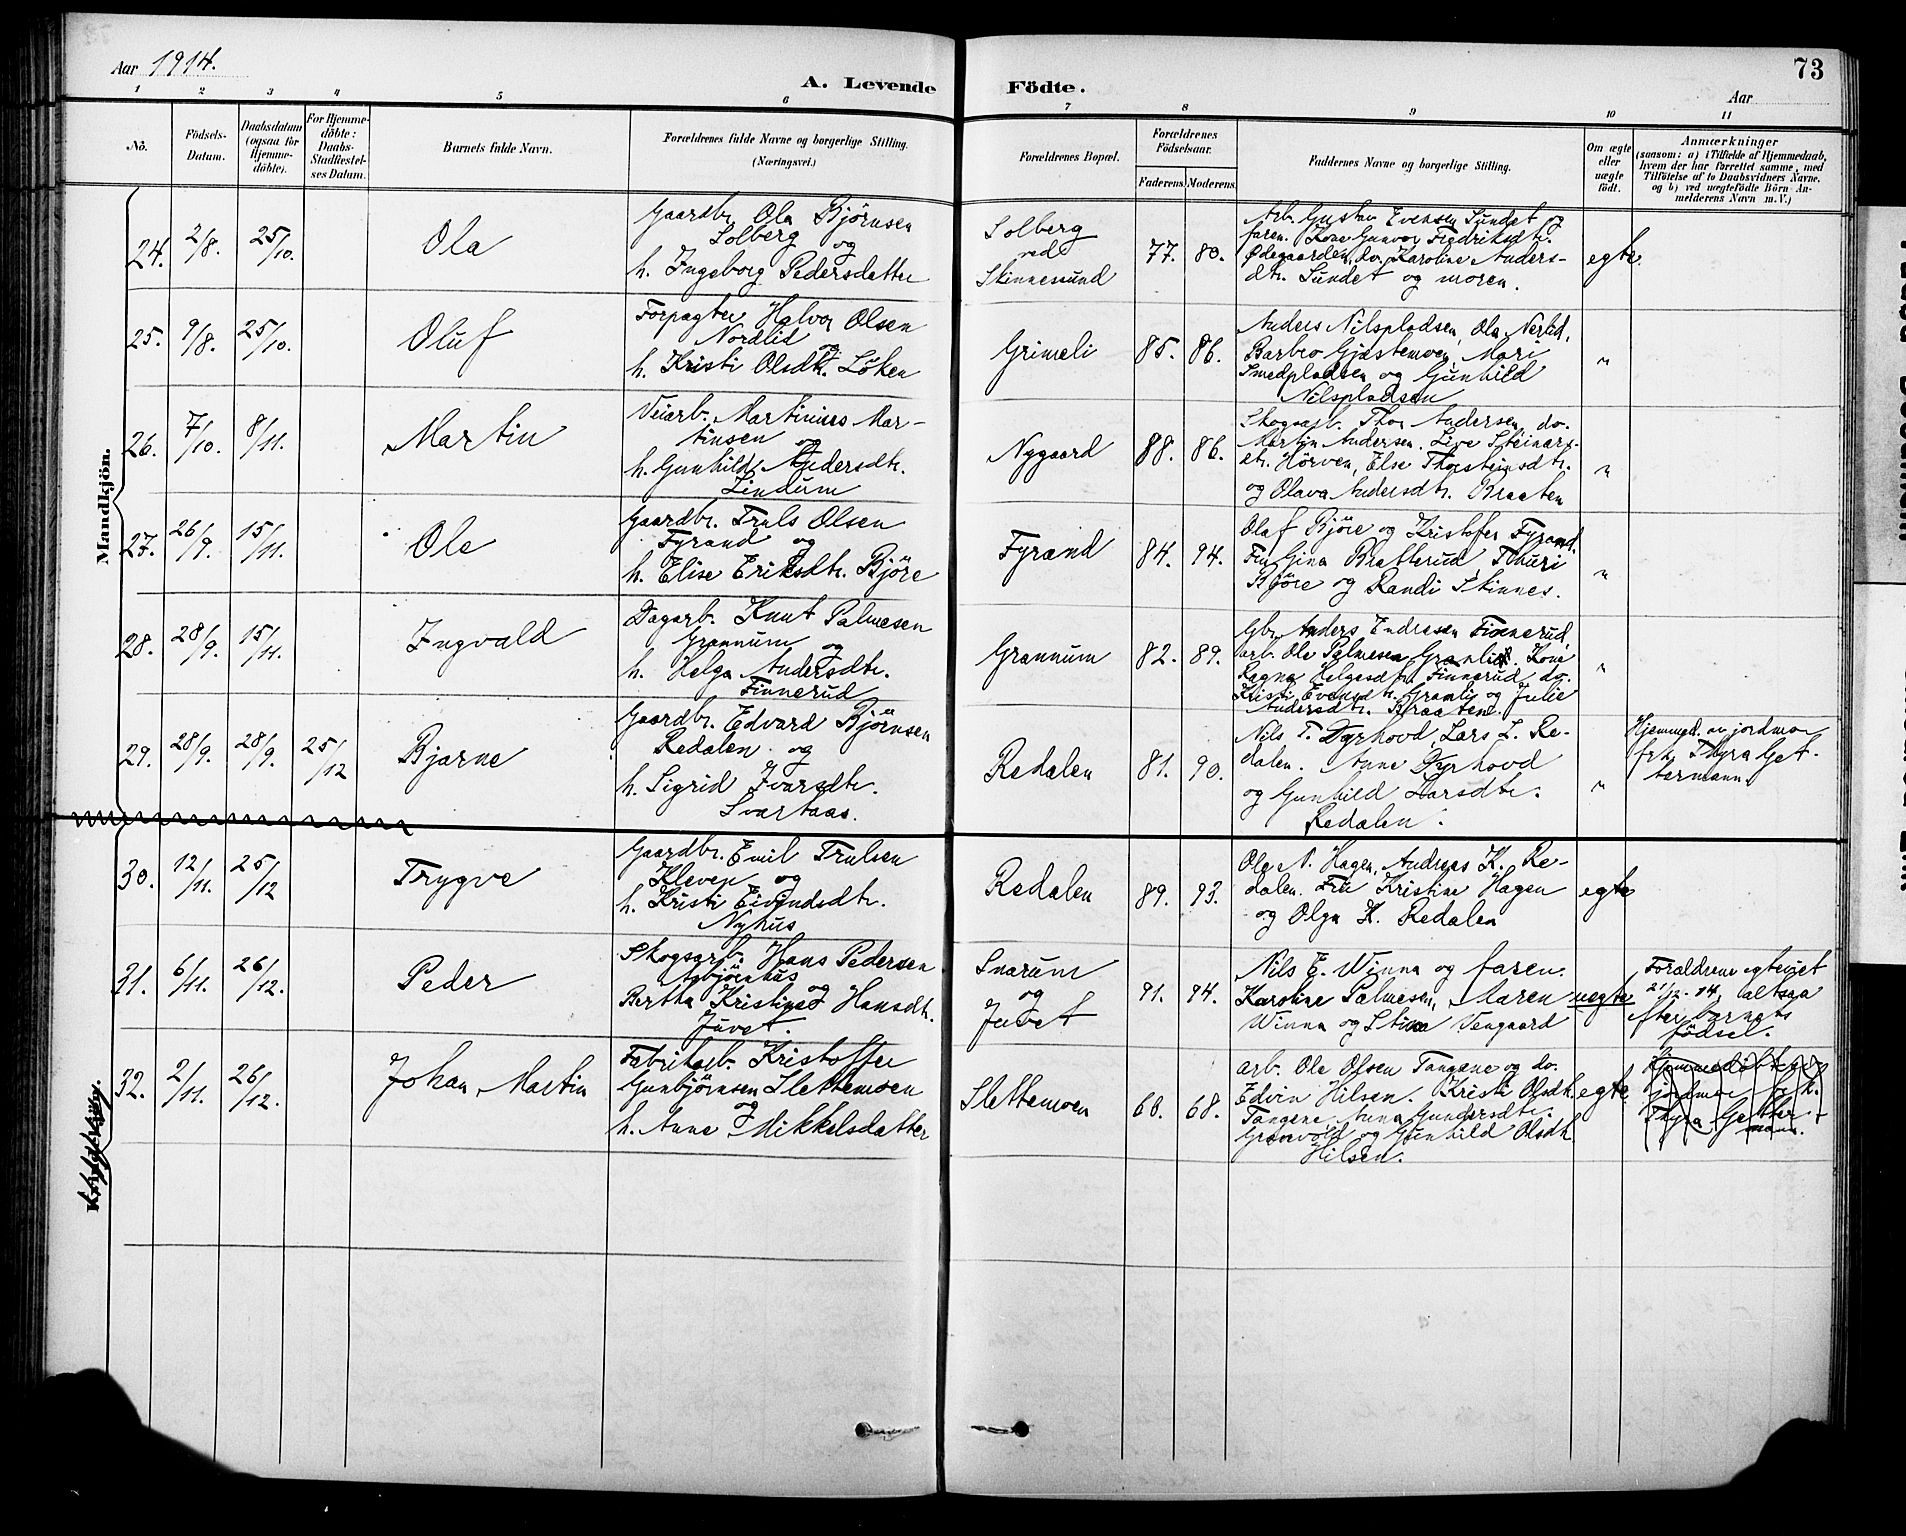 Aar 1914.
A. Levende Födte.
73
Aar
1 2 3 4 5 6 7 8 9 10 11
Nö.
Födsels-
Datum.
Daabsdatum
(ogsaa for
Hjemme-
döbte).
For Hjemme-
döbte:
Daabs-
Stadfæstel-
ses Datum.
Barnets fulde Navn.
Forældrenes fulde Navne og borgerlige Stilling.
(Næringsvei.)
Forældrenes Bopæl.
Forældrenes
Födselsaar.
Faderens. Moderens.
Faddernes Navne og borgerlige Stilling.
Om ægte
eller
uægte
födt.
Anmærkninger
(saasom: a) i Tilfælde af Hjemmedaab,
hvem der har forrettet samme, med
Tilföielse af to Daabsvidners Navne,
og b) ved uægtefödte Börn An-
melderens Navn m. V.)
Mandkjön.
24. 2/8. 25/10. Ola
Gaardbr. Ola Björnsen
Solberg og
h. Ingeborg Pedersdatter
Solberg
ved
Skinnessund
77. 80.
Arb. Gustav Evensen Sundet og
faren. Kone Gunvor Fredriksdtr.
Ødegaarden, do. Karoline Anders-
dtr. Sundet og moren.
egte
25. 9/8. 25/10. Oluf
Forpagter Halvor Olsen
Nordlid og
h. Kristi Olsdtr. Löken
Grimeli
85. 86.
Anders Nilspladsen, Ola Nerlid,
Barbro Gjestemoen, Mari
Smedpladsen og Gunhild
Nilspladsen
"
26. 7/10. 8/11. Martin
Veiarb. Martinius Mar-
tinsen og
h. Gunhild Andersdtr.
Lindum
Nygaard
88. 86.
Skogsarb. Thor Andersen, do.
Martin Andersen. Live Steinars-
dtr. Hörven, Else Thorsteinsdtr.
og Olava Andersdtr. Braaten
"
27. 26/9. 15/11. Ole
Gaardbr. Truls Olsen
Fyrand og
h. Elise Eriksdtr. Björe
Fyrand
84. 94.
Olaf Björe og Kristofer Fyrand.
Fru Gina Bratterud, Thuri
Björe og Randi Skinnes.
"
28. 28/9. 15/11. Ingvald
Dagarb. Knut Palmesen
Grannum og
h. Helga Andersdtr.
Finnerud
Grannum
82. 89.
Gbr. Anders Endresen Finnerud,
arb. Ole Palmesen Granli. Kone
Ragna Helgesdtr. Finnerud, do.
Kristi Evensdtr. Granli og Julie
Andersdtr. Braaten.
"
29. 28/9. 28/9. 25/12 Bjarne
Gaardbr. Edvard Björnsen
Redalen og
h. Sigrid Ivarsdtr.
Svartaas.
Redalen
81. 90.
Nils T. Dyrhovd, Lars L. Re-
dalen. Anne Dyrhovd
og Gunhild Larsdtr.
Redalen.
"
Hjemmed. av jordmor
frk. Thyra Get-
termann.
30. 12/11. 25/12 Trygve
Gaardbr. Emil Trulsen
Kleven og
h. Kristi Eivindsdtr.
Nyhus
Redalen
89. 93.
Ole N. Hagen, Andreas K. Re-
dalen. Fru Kristine Hagen
og Olga K. Redalen
egte
31. 6/11. 26/12. Peder
Skogsarb. Hans Pedersen
Asbjörnhus og
Bertha Kristine Hansdtr.
Juvet.
Snarum
og
Juvet
91. 94.
Nils E. Winna og faren.
Karoline Palmesen, Maren
Winna og Stine Vengaard
uegte
Forældrene egteviet
21/12-14, altsaa
efter barnets
födsel.
32. 2/11. 26/12. Johan Martin
Fabrikarb. Kristoffer
Gunbjörnsen Slettemoen
og
h. Anne Mikkelsdatter
Slettemoen
60. 68.
arb. Ole Olsen Tangene og do.
Edvin Hilsen. Kristi Olsdtr.
Tangene, Anna Gundersdtr.
Grønvold og Gunhild Olsdtr.
Hilsen.
egte
Hjemmedöbt av
jordmor frk.
Thyra Getter-
mann.